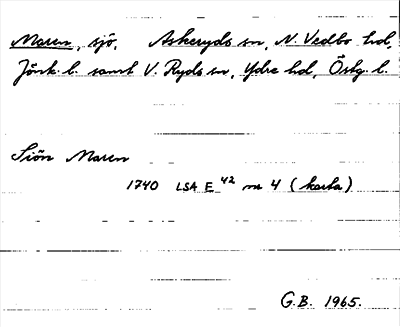 Maren, sjö, Askeryds sn, N. Vedbo hd,
Jönk. l. samt V. Ryds sn, Ydre hd, Östg. l.
Siön Maren
1740 LSA E 42 nr 4 (karta)
G.B. 1965.